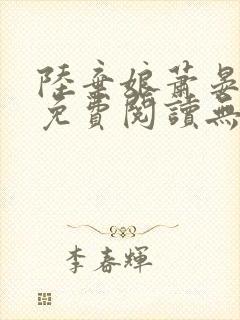 陸棄娘蕭晏
免費閱讀無
李春輝